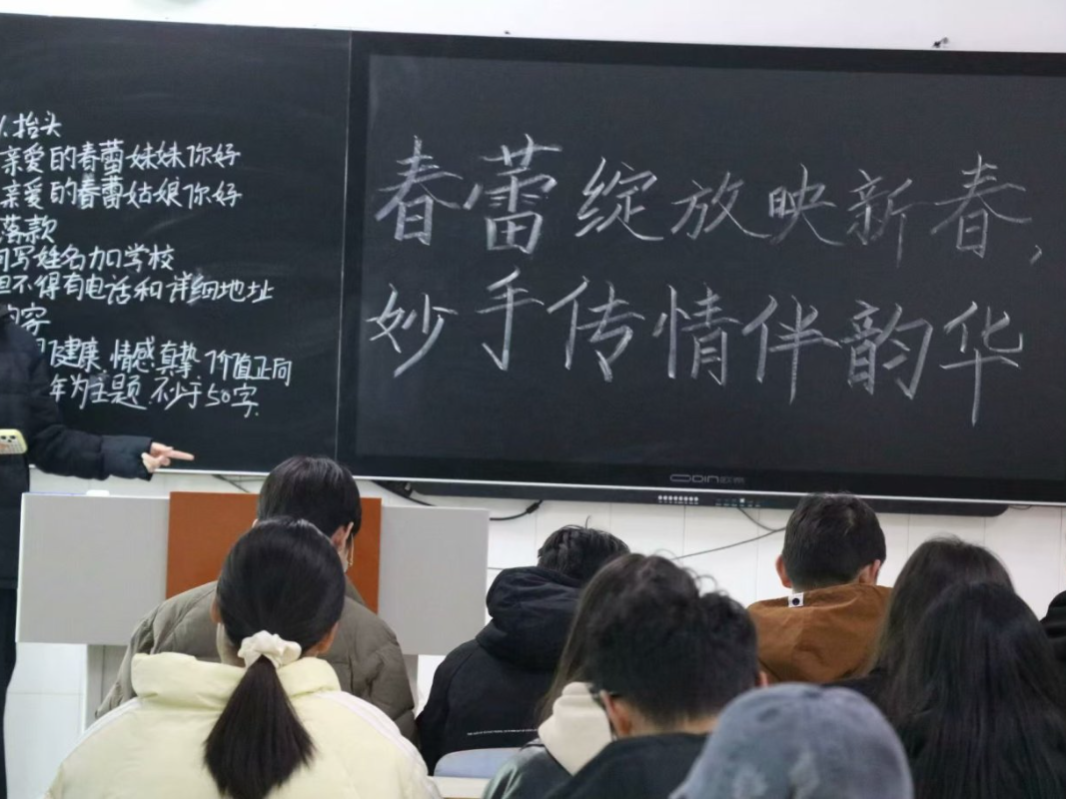 1.抬头
亲爱的春蕾妹妹你好
亲爱的春蕾姑娘你好
落款
写姓名加学校
但不得有电话和详细地址
内容
健康 情感真挚 价值正向
年为主题 不少于50字
春蕾绽放映新春,
妙手传情伴韵华